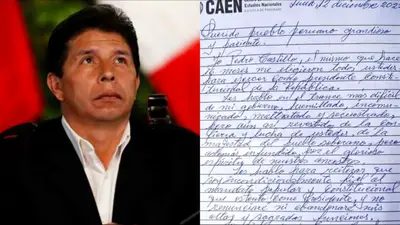 CAEN
Estudios Nacionales
Lima, 12 diciembre 202
Querido pueblo peruano grandioso
y paciente.
Yo Pedro Castillo, el mismo que hace
16 meses me eligieron todos ustedes
para servir como presidente consti-
tucional de la República.
Les hablo en el trance más difícil
de mi gobierno, humillado, incomu-
nicado, maltratado y secuestrado,
pero aún así revestido de la con-
fianza y lucha de ustedes, de la
majestad del pueblo soberano, pero
infundido por el glorioso
espíritu de nuestros ancestros
Les hablo para reiterar que
soy incondicionalmente fiel al
mandato popular y constitucional
que ostento como presidente, y no
renunciaré ni abandonaré mis
altas y sagradas funciones.